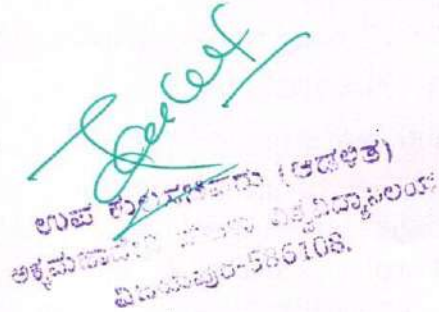 ಉಪ ಕುಲಸಚಿವರು (ಆಡಳಿತ)
ಅಕ್ಕಮಹಾದೇವಿ ಮಹಿಳಾ ವಿಶ್ವವಿದ್ಯಾನಿಲಯ
ವಿಜಯಪುರ-586108.